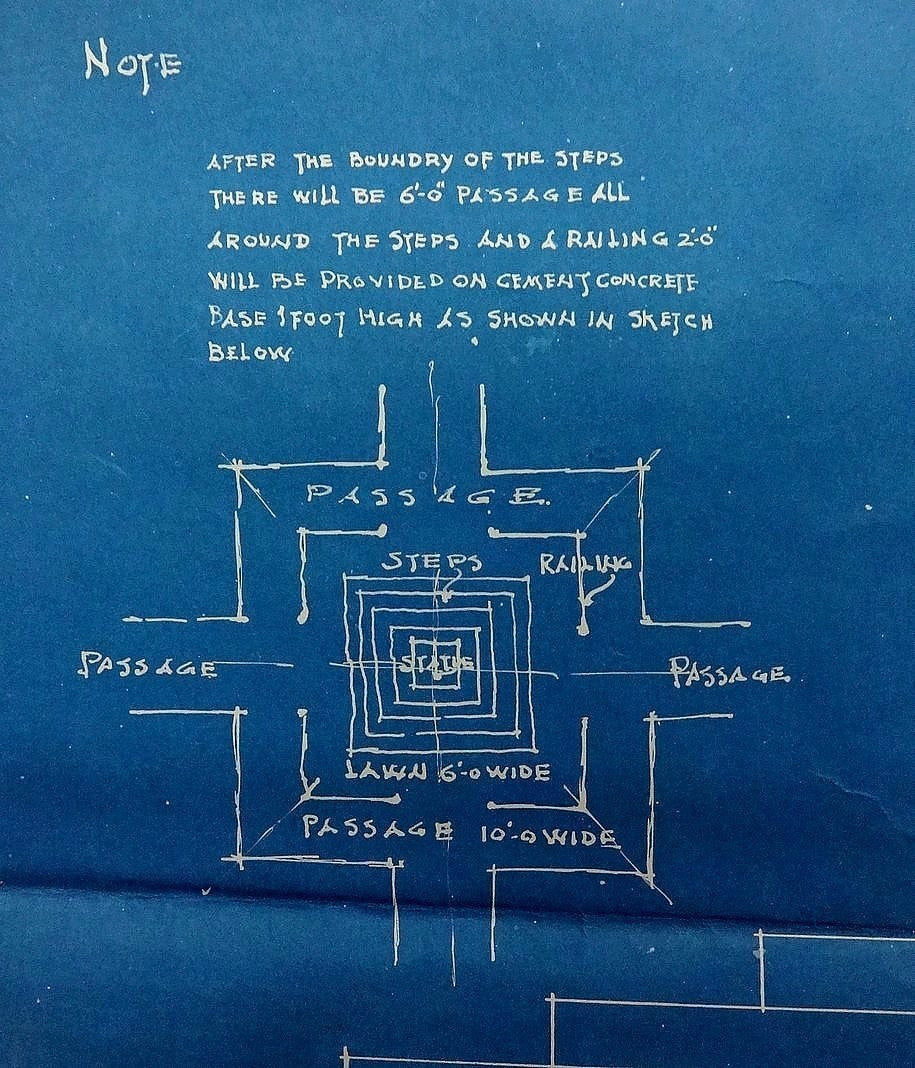 NOTE
AFTER THE BOUNDRY OF THE STEPS
THERE WILL BE 6'-0" PASSAGE ALL
AROUND THE STEPS AND A RAILING 2'-0"
WILL BE PROVIDED ON CEMENT CONCRETE
BASE 1 FOOT HIGH AS SHOWN IN SKETCH
BELOW
PASSAGE.
STEPS RAILING
PASSAGE STATUE PASSAGE.
LAWN 6'-0 WIDE
PASSAGE 10'-0 WIDE